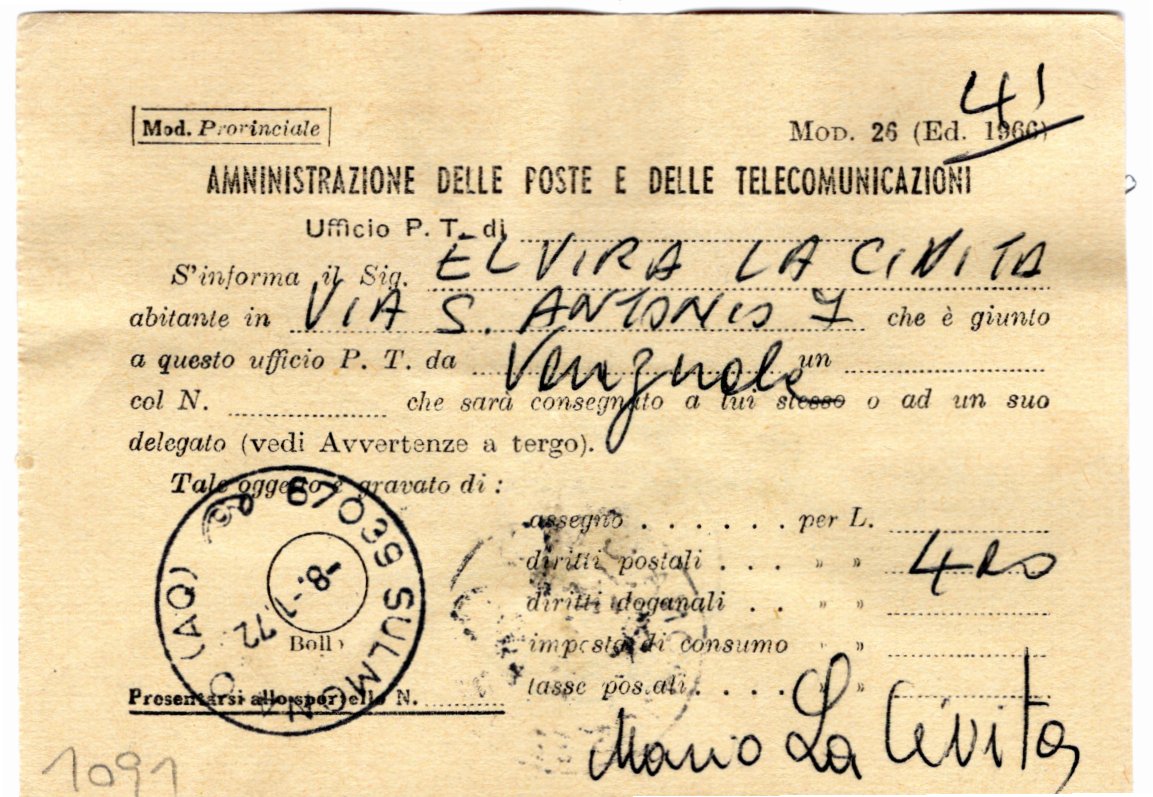 41
Mod. Provinciale
Mod. 26 (Ed. 1966)
AMNINISTRAZIONE DELLE POSTE E DELLE TELECOMUNICAZIONI
Ufficio P. T. di
S'informa il Sig. ELVIRA LA CIVITA
abitante in VIA S. ANTONIO 7 che è giunto
a questo ufficio P. T. da Venezuela un
col N. che sarà consegnato a lui stesso o ad un suo
delegato (vedi Avvertenze a tergo).
Tale oggetto è gravato di :
assegno . . . . . . per L.
diritti postali . . . » »
diritti doganali . . » »
imposta di consumo » »
tasse postali . . . . » »
67039 SULMONA (AQ)
-8.-
72
Bollo
Presentarsi allo sportello N.
Mario La Civita
1091